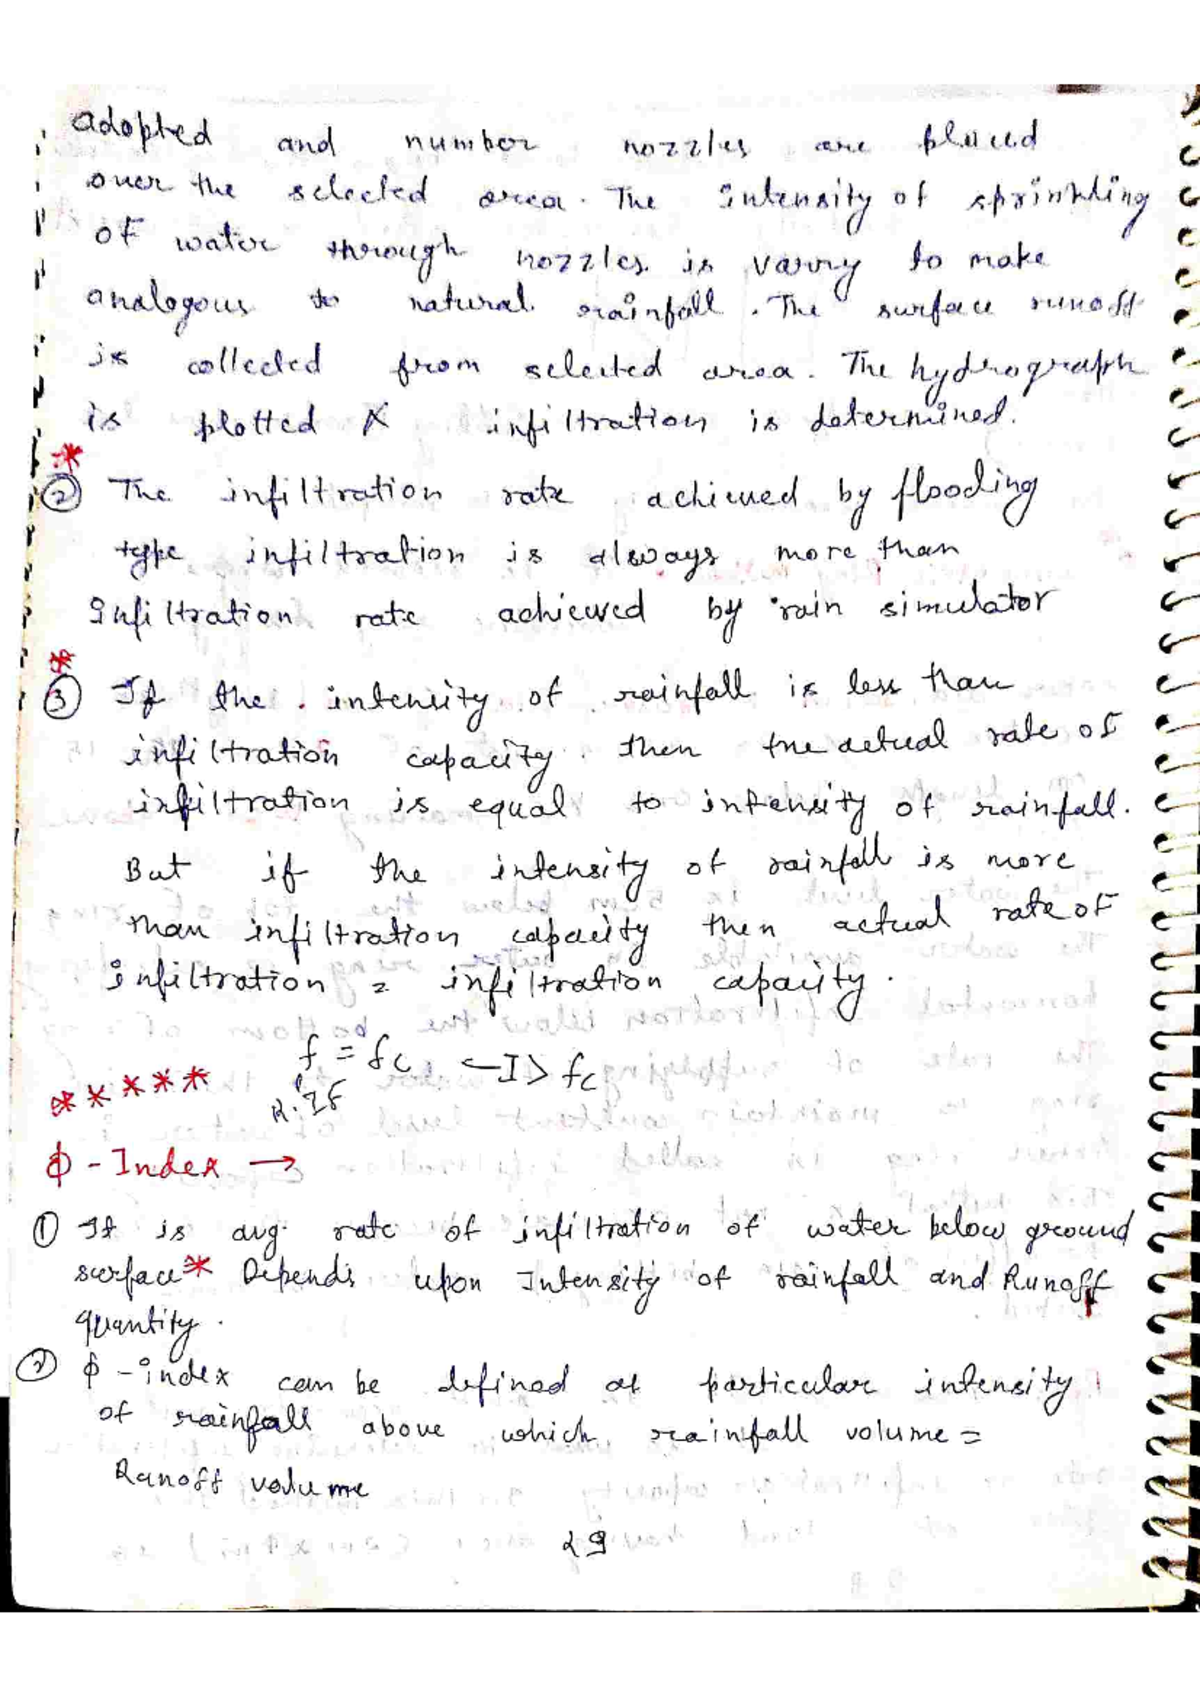 adopted and number nozzles are placed
over the selected area. The intensity of sprinkling
of water through nozzles is varry to make
analogous to natural rainfall. The surface runoff
is collected from selected area. The hydrograph
is plotted & infiltration is determined.
*
② The infiltration rate achieved by flooding
type infiltration is always more than
Infiltration rate achieved by rain simulator
*
③ If the intensity of rainfall is less than
infiltration capacity then the actual rate of
infiltration is equal to intensity of rainfall.
But if the intensity of rainfall is more
than infiltration capacity then actual rate of
infiltration = infiltration capacity.
f = fc ← I > fc
*****
ϕ - Index →
① It is avg. rate of infiltration of water below ground
surface * Depends upon Intensity of rainfall and Runoff
quantity.
② ϕ - index can be defined at particular intensity
of rainfall above which rainfall volume =
Runoff volume
29